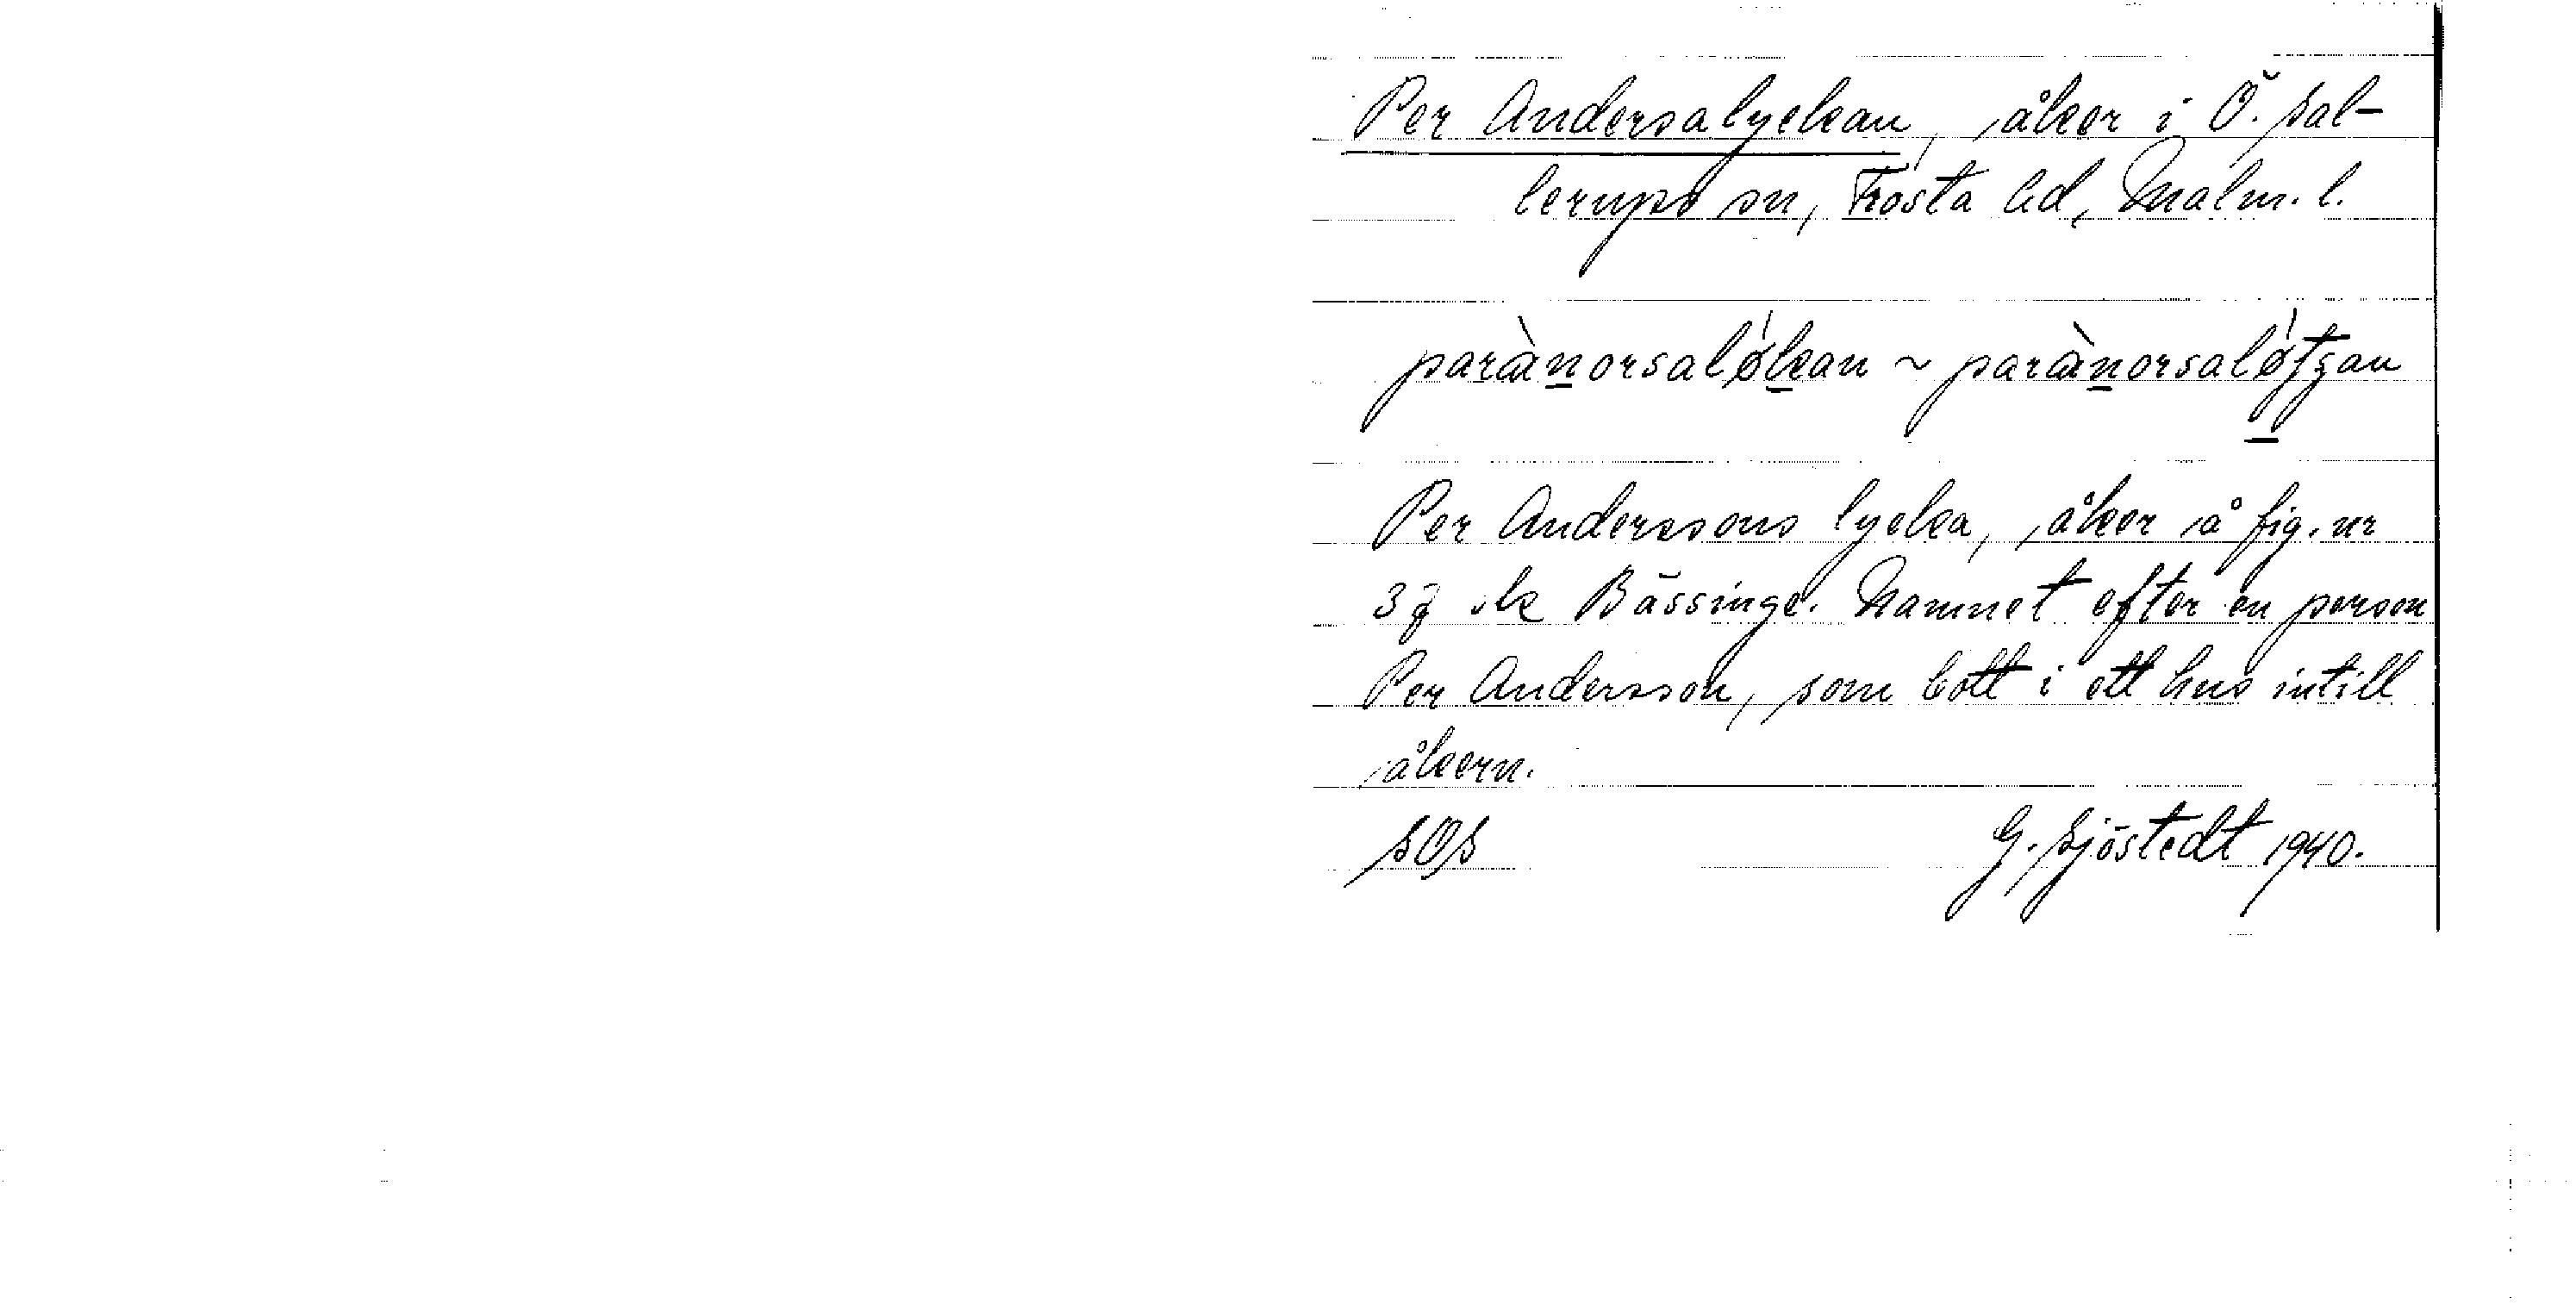 Per Andersalyckan, åker i Ö. Sal-
lerups sn, Frosta hd, Malm. l.
parànorsaló̗kan ~ parànorsaløtʒan
Per Anderssons lycka, åker å fig. nr
37 sk Bässinge. Namnet efter en person
Per Andersson, som bott i ett hus intill
åkern.
SOS G. Sjöstedt 1940.